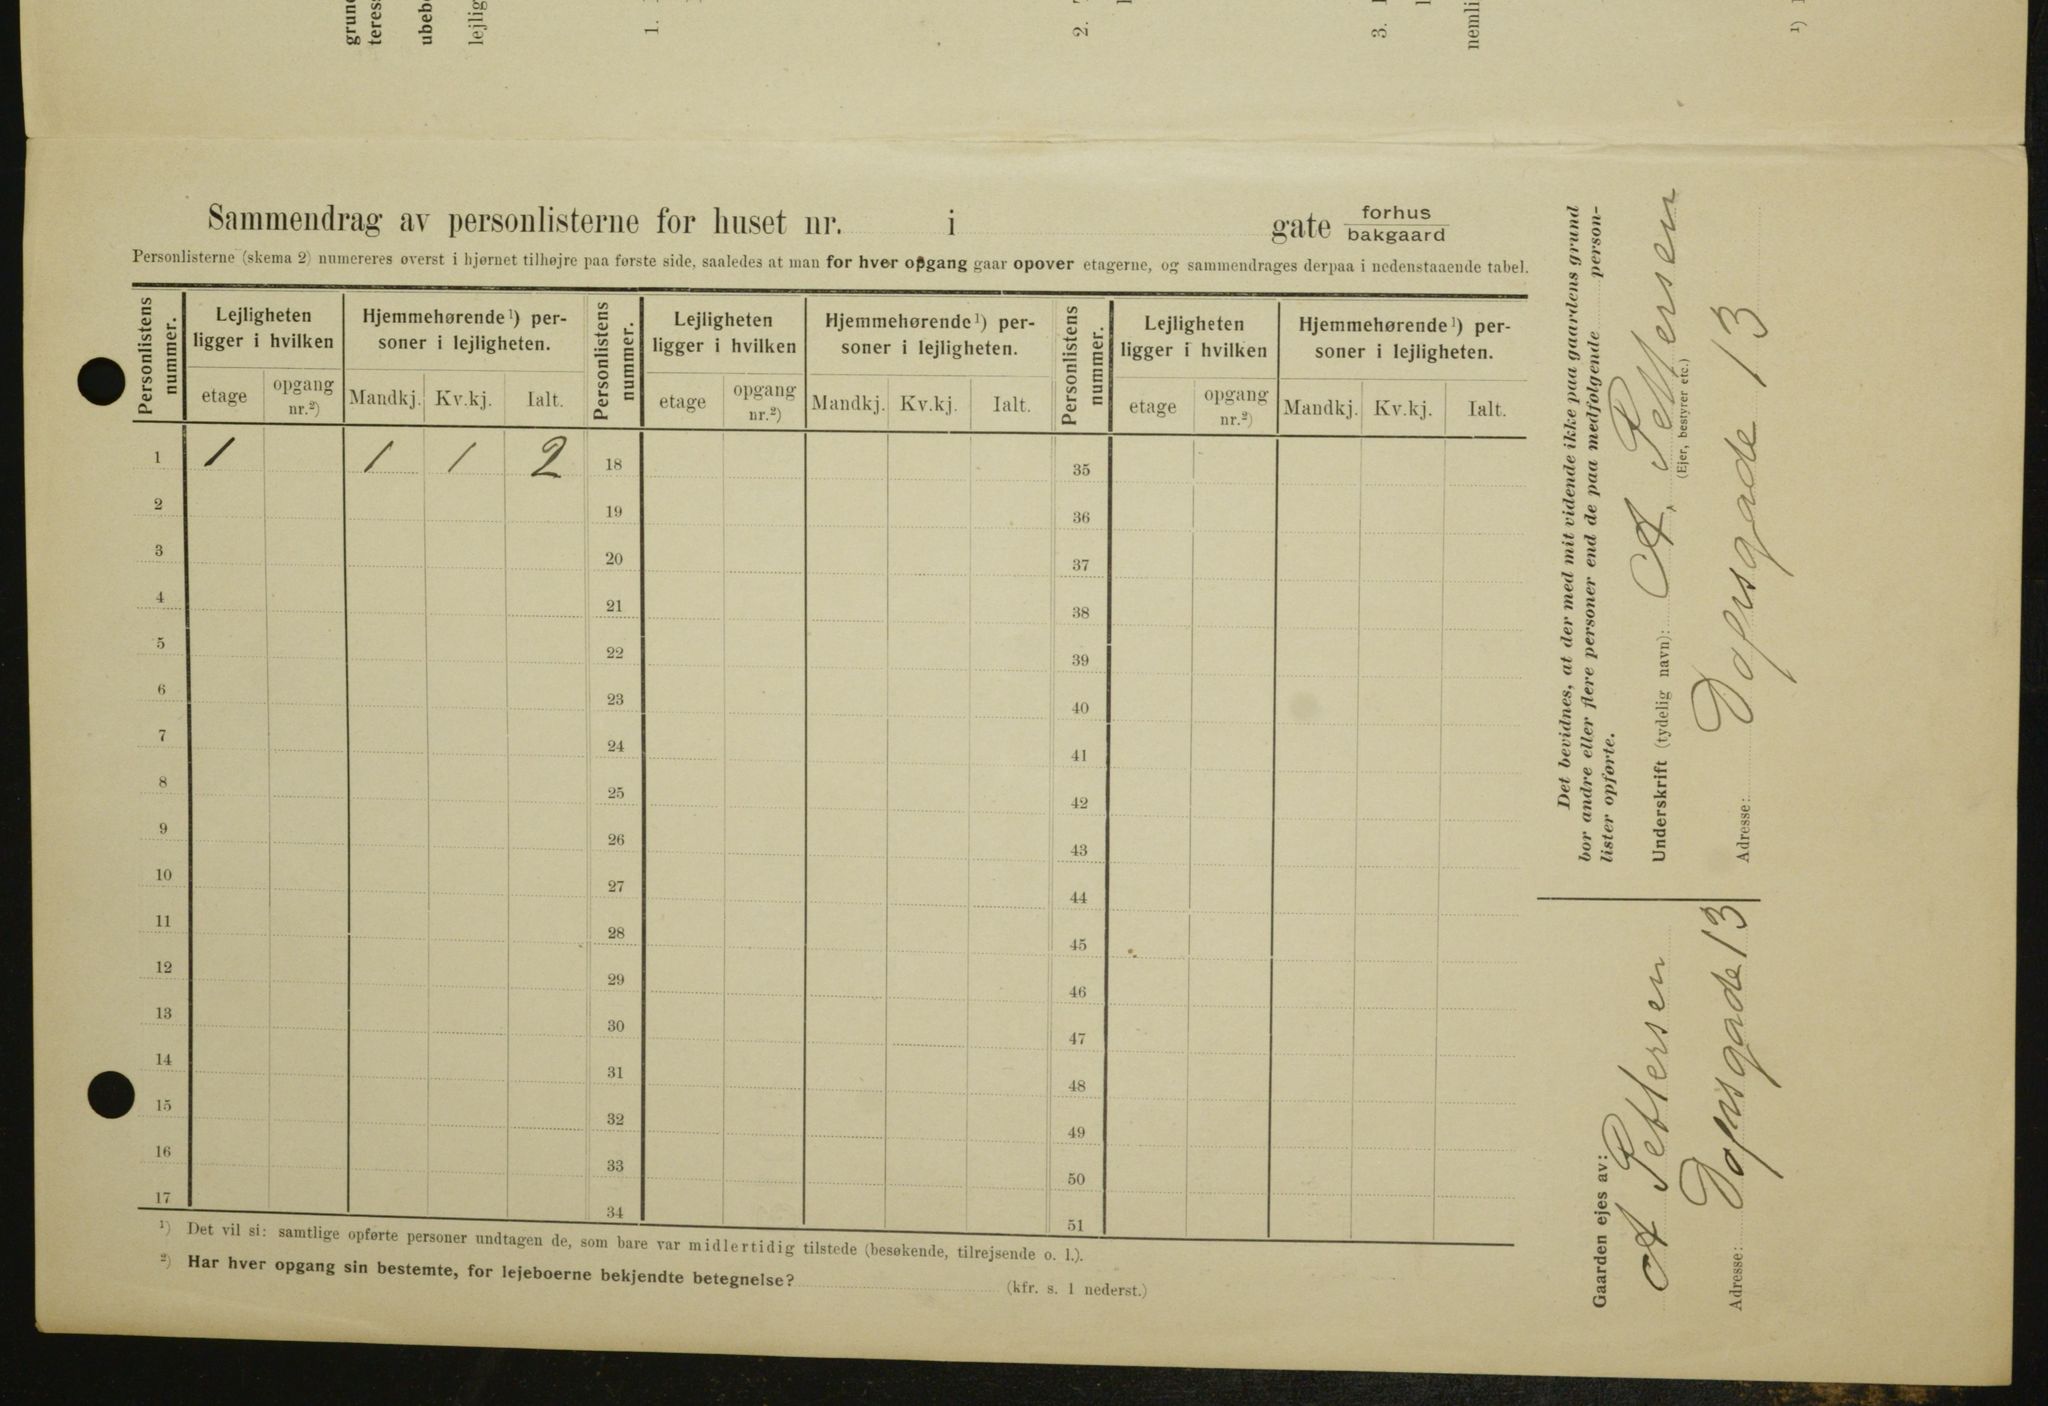 grun
teress
ubebo
lejlig
1.
2.
3.
nemli
¹)
Sammendrag av personlisterne for huset nr. i gate forhus
bakgaard
Personlisterne (skema 2) numereres øverst i hjørnet tilhøjre paa første side, saaledes at man for hver opgang gaar opover etagerne, og sammendrages derpaa i nedenstaaende tabel.
Personlistens nummer. Lejligheten ligger i hvilken Hjemmehørende ¹) personer i lejligheten. Personlistens nummer. Lejligheten ligger i hvilken Hjemmehørende ¹) personer i lejligheten. Personlistens nummer. Lejligheten ligger i hvilken Hjemmehørende ¹) personer i lejligheten.
etage opgang nr.²) Mandkj. Kv.kj. Ialt. etage opgang nr.²) Mandkj. Kv.kj. Ialt. etage opgang nr.²) Mandkj. Kv.kj. Ialt.
1 1 1 1 2 18 35
2 19 36
3 20 37
4 21 38
5 22 39
6 23 40
7 24 41
8 25 42
9 26 43
10 27 44
11 28 45
12 29 46
13 30 47
14 31 48
15 32 49
16 33 50
17 34 51
¹) Det vil si: samtlige opførte personer undtagen de, som bare var midlertidig tilstede (besøkende, tilrejsende o. l.).
²) Har hver opgang sin bestemte, for lejeboerne bekjendte betegnelse? (kfr. s. 1 nederst.)
Det bevidnes, at der med mit vidende ikke paa gaardens grund
bor andre eller flere personer end de paa medfølgende person-
lister opførte.
Underskrift (tydelig navn): A. Pettersen
(Ejer, bestyrer etc.)
Adresse: Dopsgade 13
Gaarden ejes av:
A Pettersen
Adresse: Dopsgade 13